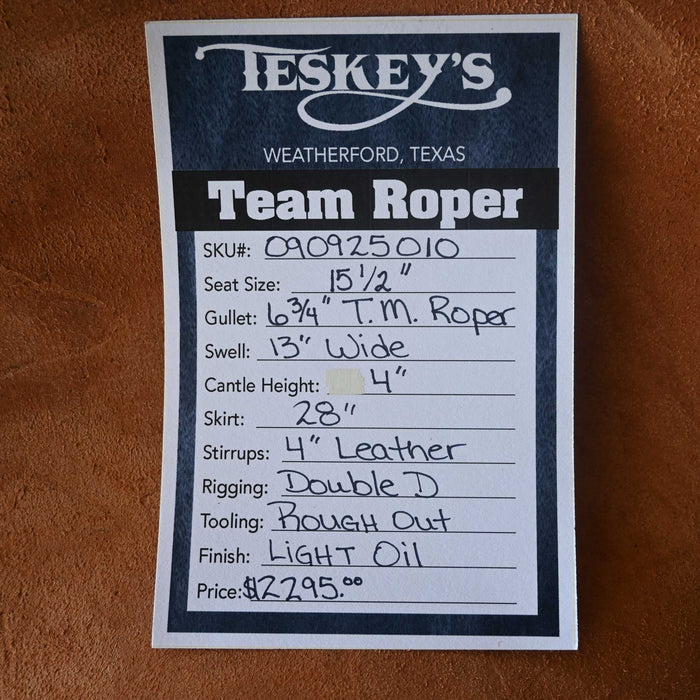 TESKEY'S
WEATHERFORD, TEXAS
Team Roper
SKU#: 090925010
Seat Size: 15 1/2"
Gullet: 6 3/4" T.M. Roper
Swell: 13" Wide
Cantle Height: 4"
Skirt: 28"
Stirrups: 4" Leather
Rigging: Double D
Tooling: Rough Out
Finish: Light Oil
Price: $2295.00